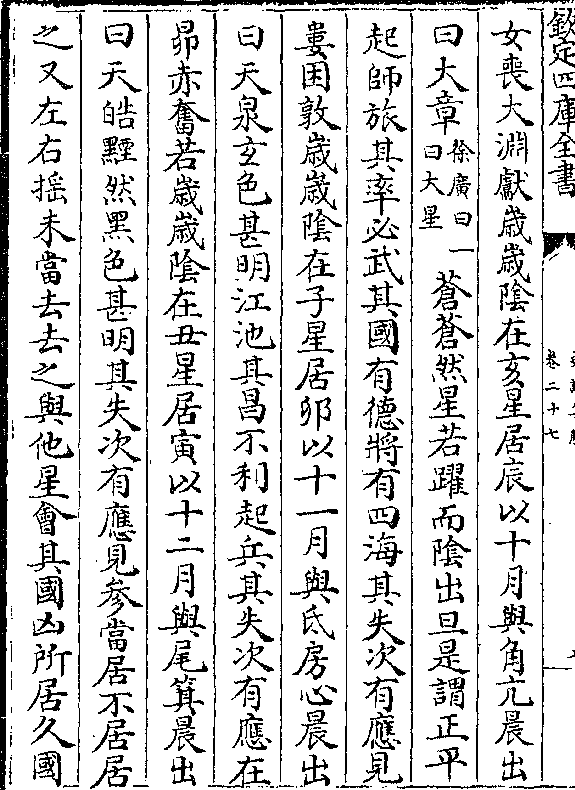 欽定四庫全書
卷二十七
女喪大淵獻歲歲陰在亥星居辰以十月與角亢晨出
曰大章徐廣曰一曰大星蒼蒼然星若躍而陰出旦是謂正平
起師旅其率必武其國有德將有四海其失次有應見
婁困敦歲歲陰在子星居卯以十一月與氐房心晨出
曰天泉玄色甚明江池其昌不利起兵其失次有應在
昴赤奮若歲歲陰在丑星居寅以十二月與尾箕晨出
曰天皓黫然黑色甚明其失次有應見參當居不居居
之又左右揺未當去去之與他星會其國凶所居久國